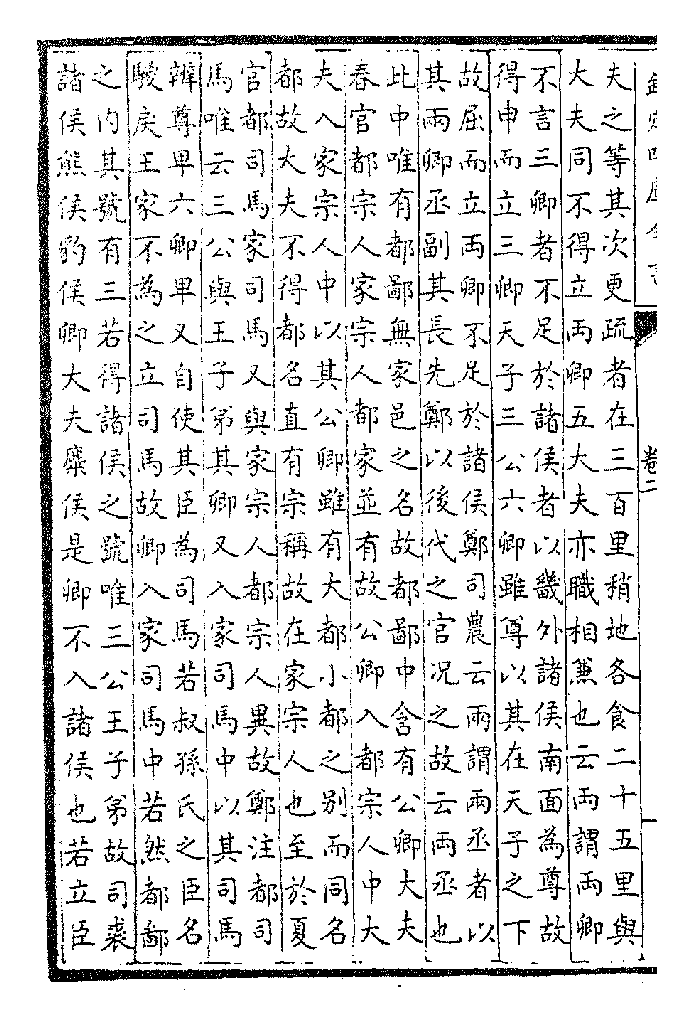 欽定四庫全書
卷二
夫之等其次更疏者在三百里稍地各食二十五里與
大夫同不得立兩卿五大夫亦職相兼也云兩謂兩卿
不言三卿者不足於諸侯者以畿外諸侯南面為尊故
得申而立三卿天子三公六卿雖尊以其在天子之下
故屈而立兩卿不足於諸侯鄭司農云兩謂兩丞者以
其兩卿丞副其長先鄭以後代之官况之故云兩丞也
此中唯有都鄙無家邑之名故都鄙中含有公卿大夫
春官都宗人家宗人都家並有故公卿入都宗人中大
夫入家宗人中以其公卿雖有大都小都之别而同名
都故大夫不得都名直有宗稱故在家宗人也至於夏
官都司馬家司馬又與家宗人都宗人異故鄭注都司
馬唯云三公與王子弟其卿又入家司馬中以其司馬
辨尊卑六卿卑又自使其臣為司馬若叔孫氏之臣名
鬷戾王家不為之立司馬故卿入家司馬中若然都鄙
之内其號有三若得諸侯之號唯三公王子弟故司裘
諸侯熊侯豹侯卿大夫麋侯是卿不入諸侯也若立臣